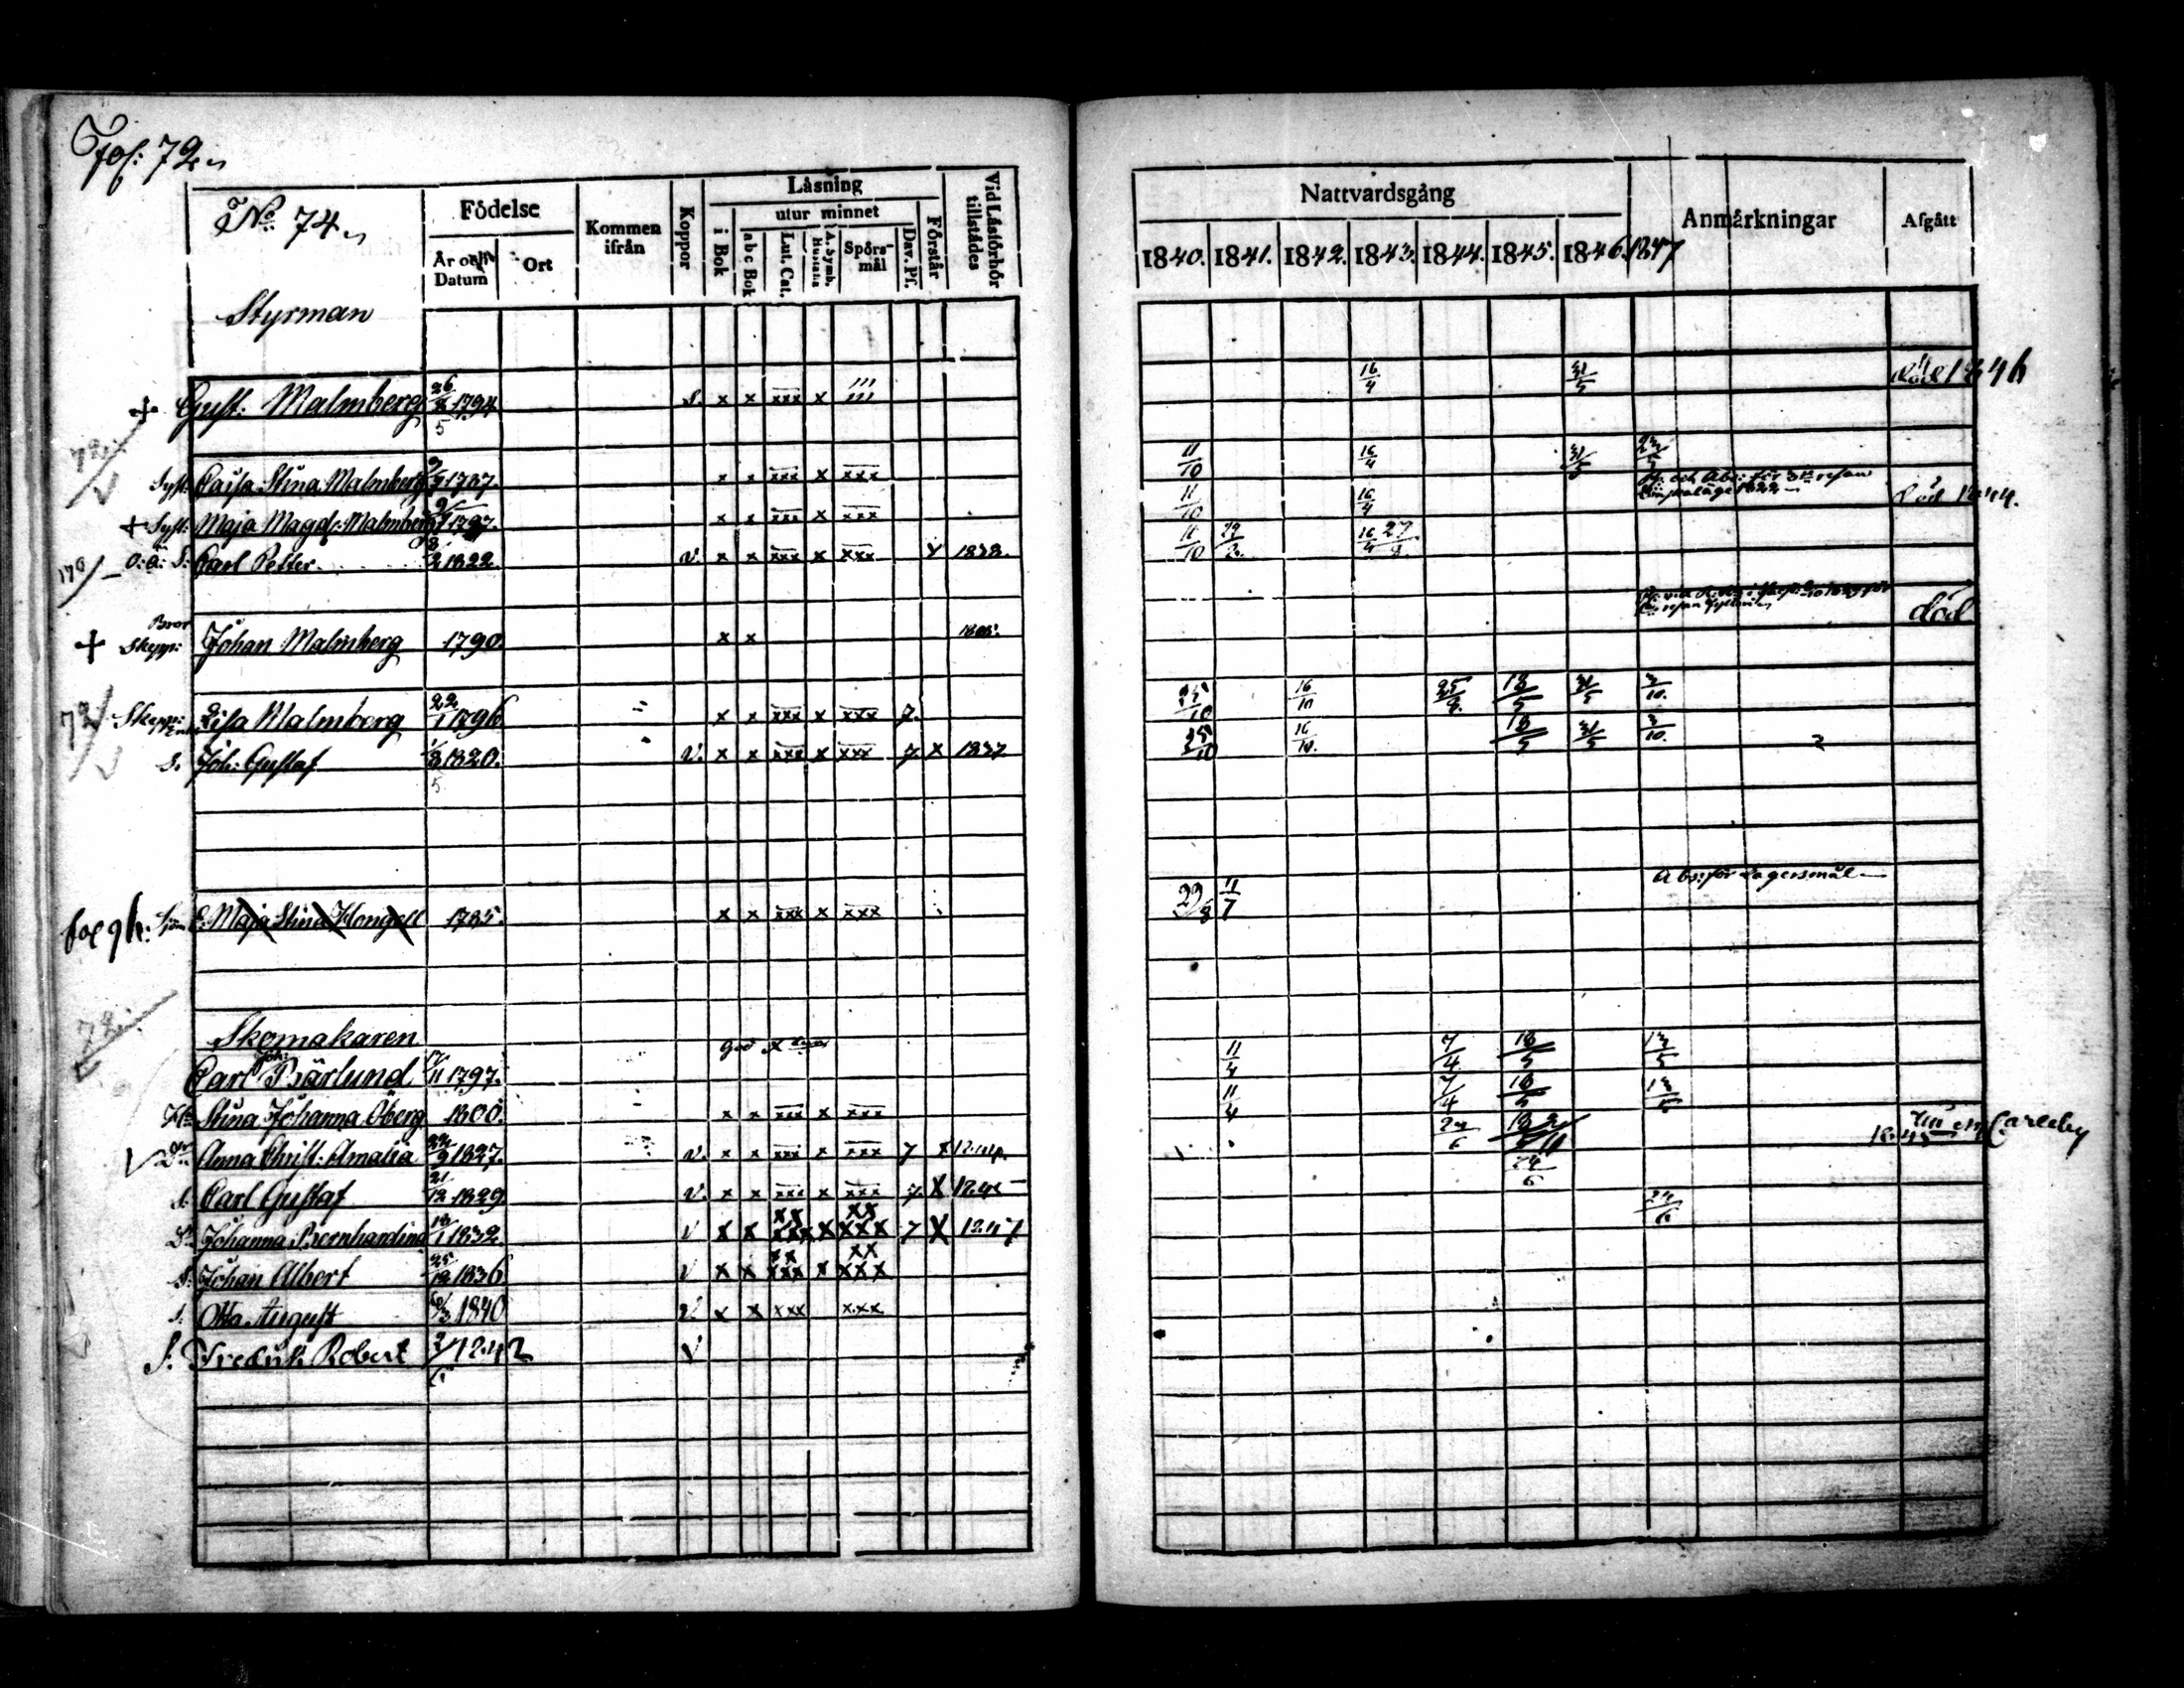 Fol: 72.
No 74.
Födelse
År och Datum
Ort
Kommen ifrån
Koppor
Låsning
i Bok
utur minnet
abc Bok
Lut. Cat.
A. Symb. Hustafla
Spörsmål
Dav. Ps.
Förstår
Vid Låsförhör tillstådes
Nattvardsgång
1840. 1841. 1842. 1843. 1844. 1845. 1846. 1847
Anmårkningar
Afgått
Styrman
+ Gust: Malmberg 26/5 1794 S. x x xxx x 16/4 31/5 död 1846
72 Syst: Caisa Stina Malmberg 1787. x x xxx x xxx 11/10 16/4 31/5
+ Syst: Maja Magd: Malmberg 1797 x x xxx x xxx 11/10 16/4 död 1844.
170 o.ä. S: Carl Petter 1822 v. x x xxx x xxx x 1838. 11/10 16/4
+ Bror Skepp: Johan Malmberg 1790. x x död
72 Skepp: Enk: Lisa Malmberg 22/1 1796 x x xxx x xxx 7. 25/10 16/10 25/8 18/5 31/5 3/10.
S. Joh: Gustaf 1820. v. x x xxx x xxx 7. x 1837 25/10 16/10. 18/5 31/5 3/10.
Abs: för Lägersmål
fol 96: E. Maja Stina Hongell 1785. x x xxx x xxx 29/8 11/7
72
Skomakaren
Carl Joh: Bärlund 1797. god x 11/4 7/4 18/5 13/5
H:u Stina Johanna Öberg 1800. x x xxx x xxx 11/4 7/4 18/5 13/5
D:r Anna Christ: Amalia 1827. v. x x xxx x xxx 7 x 1844. 24/6 18/5 2/11 1845 till Carleby
S. Carl Gustaf 21/12 1829 v. x x xxx x xxx 7. x 1845 24/6
D:r Johanna Bernhardina 1832. v x x xxx x xxx 7 x 1847 24/6
S: Johan Albert 25/12 1836 v x x xxx x xxx
S. Otto August 1840 v. x x xxx xxx
S. Fredrik Robert 1842 v